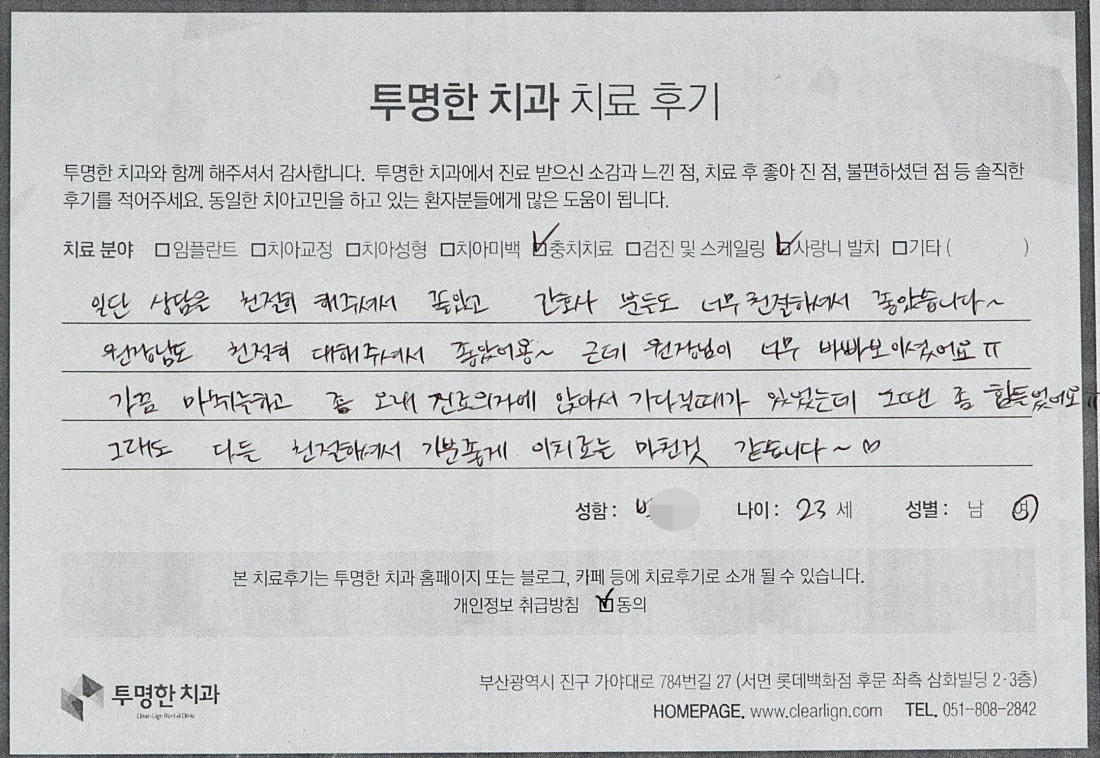 투명한 치과 치료 후기
투명한 치과와 함께 해주셔서 감사합니다. 투명한 치과에서 진료 받으신 소감과 느낀 점, 치료 후 좋아 진 점, 불편하셨던 점 등 솔직한
후기를 적어주세요. 동일한 치아고민을 하고 있는 환자분들에게 많은 도움이 됩니다.
치료 분야 □임플란트 □치아교정 □치아성형 □치아미백 ☑충치치료 □검진 및 스케일링 ☑사랑니 발치 □기타 ( )
일단 상담을 친절히 해주셔서 좋았고 간호사 분들도 너무 친절하셔서 좋았습니다~
원장님도 친절히 대해주셔서 좋았어용~ 근데 원장님이 너무 바빠보이셨어요 ㅠ
가끔 마취하고 좀 오래 진료의자에 앉아서 기다릴때가 있었는데 그땐 좀 힘들었어요 ㅠ
그래도 다들 친절하셔서 기분좋게 이치료는 마친것 같습니다~ ♡
성함 : 나이 : 23 세 성별 : 남 여
본 치료후기는 투명한 치과 홈페이지 또는 블로그, 카페 등에 치료후기로 소개 될 수 있습니다.
개인정보 취급방침 ☑동의
투명한 치과
Clear-Lign Dental Clinic
부산광역시 진구 가야대로 784번길 27 (서면 롯데백화점 후문 좌측 삼화빌딩 2·3층)
HOMEPAGE. www.clearlign.com TEL. 051-808-2842